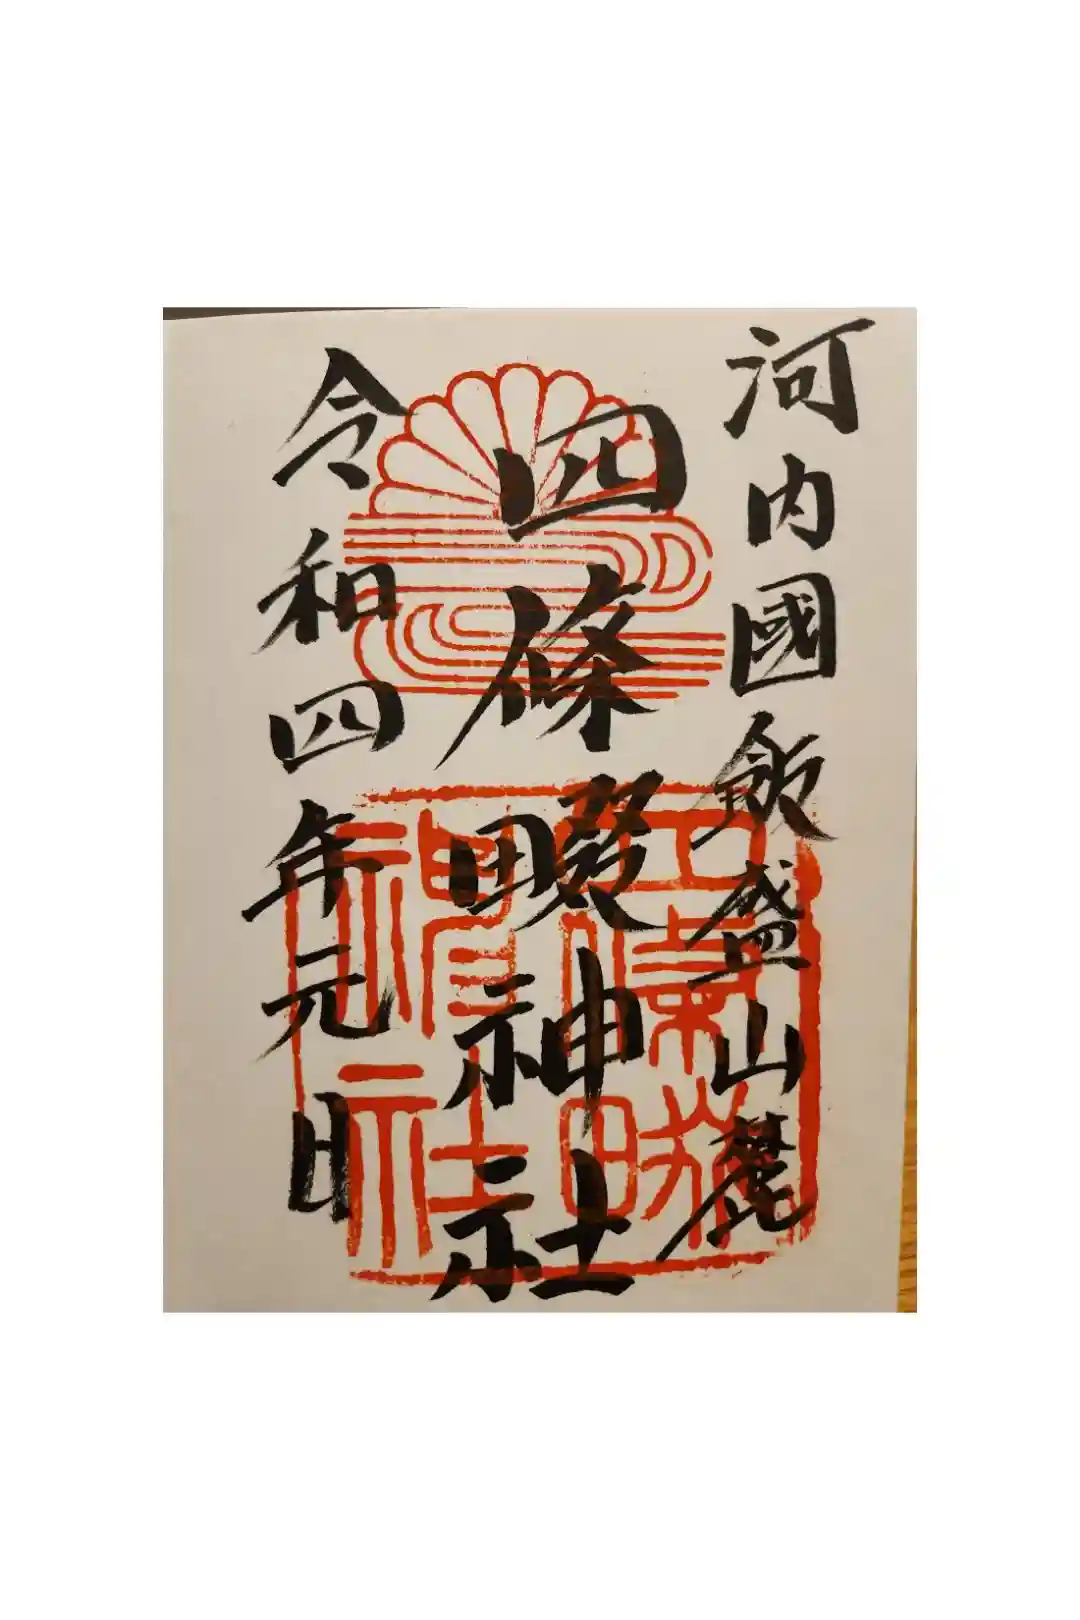 河内國飯盛山麓
四條畷神社
令和四年元日
四條畷
神社